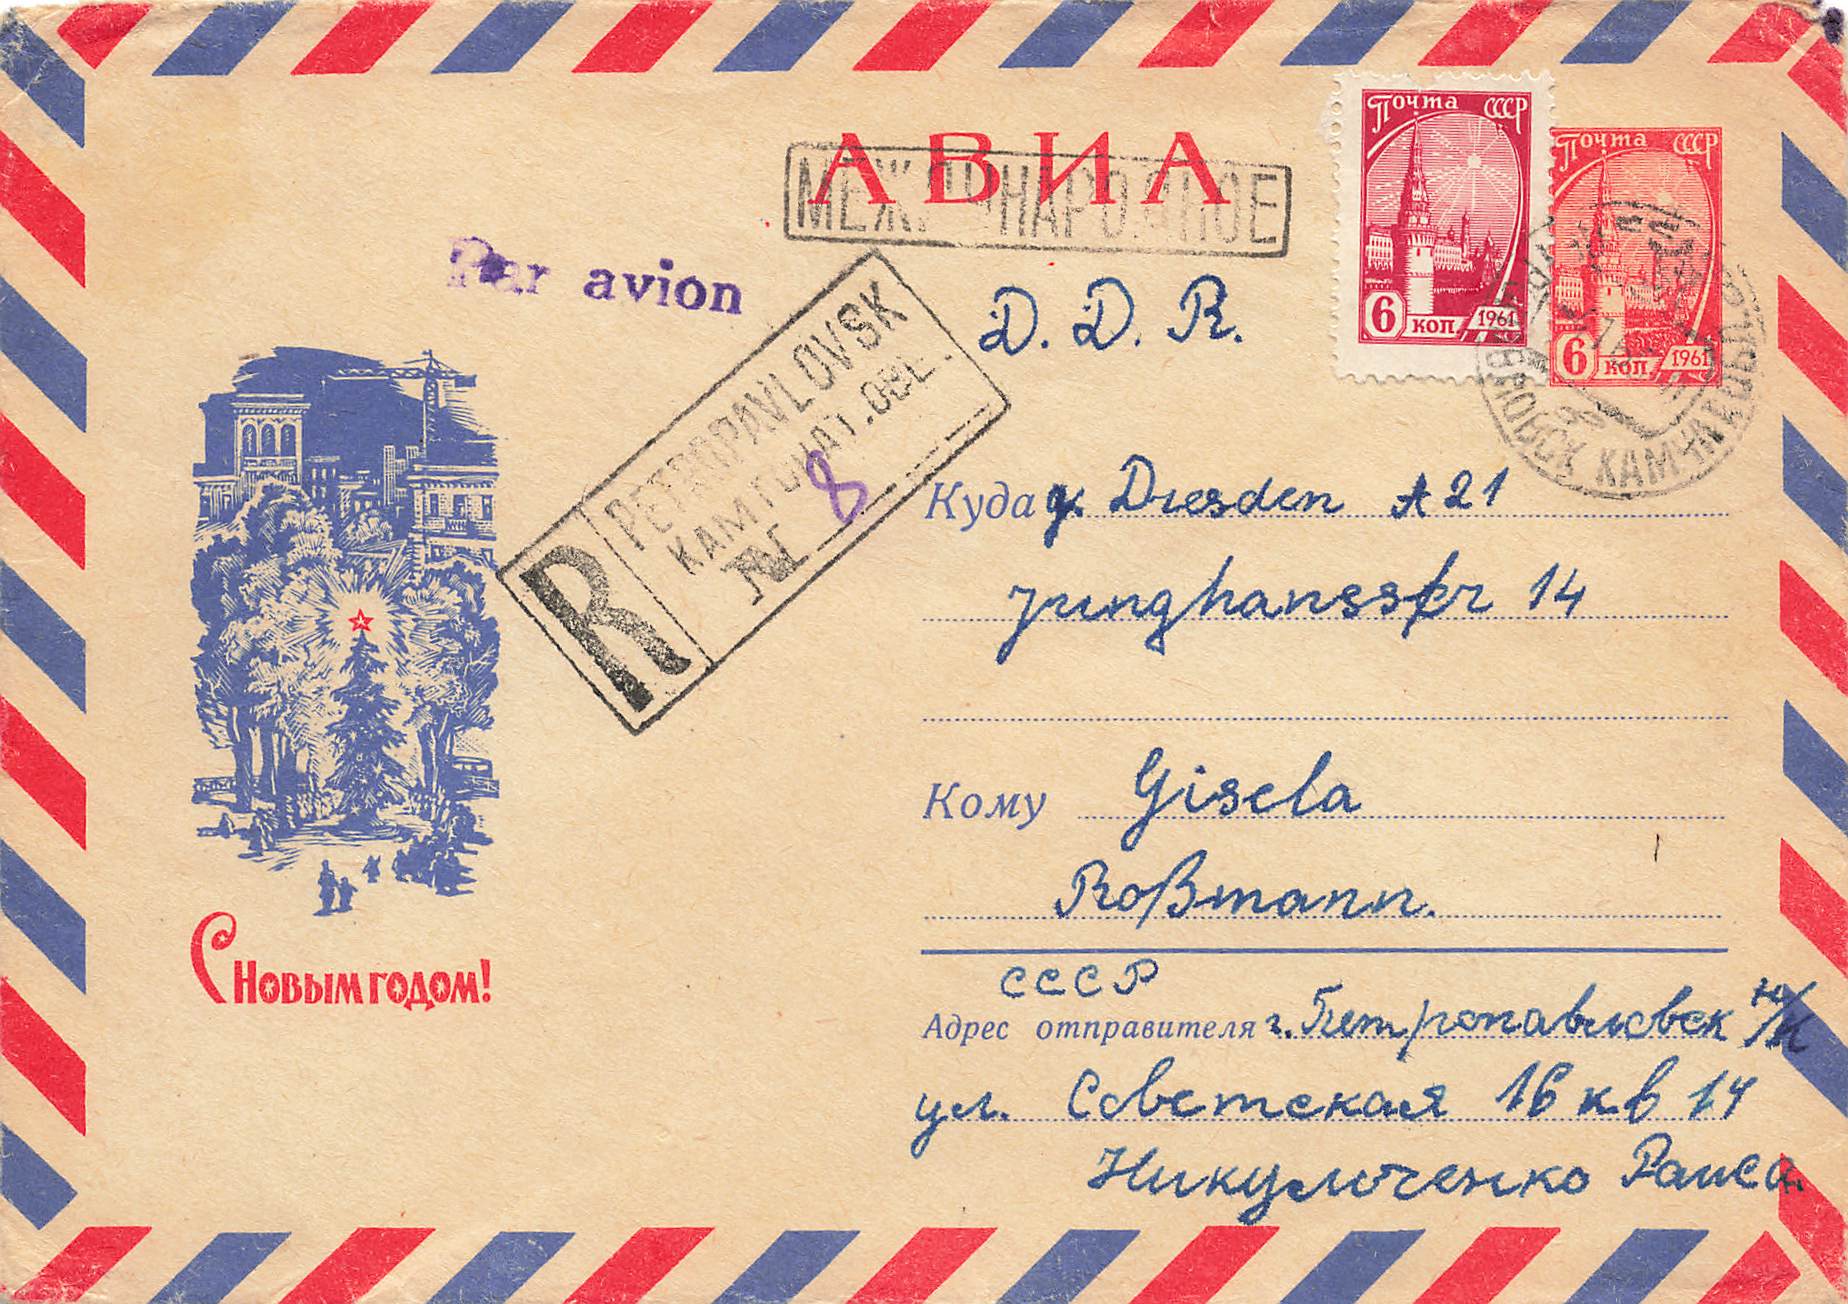 АВИА
МЕЖДУНАРОДНОЕ
Par avion
Почта СССР
6 коп. 1961
Почта СССР
6 коп. 1961
D. D. R.
R
PETROPAVLOVSK
KAMTCHAT. OBL.
№ 8
Куда g. Dresden A 21
Junghansstr 14
Кому Gisela
Roßmann.
С Новым годом!
СССР
Адрес отправителя г. Петропавловск
ул. Советская 16 кв 14
Никулоченко Раиса.